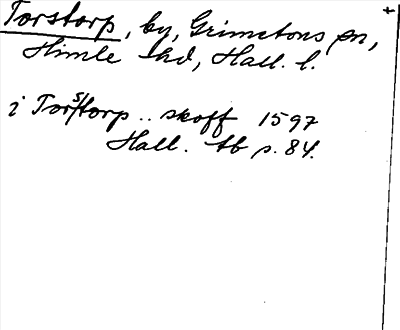 Torstorp, by, Grimetons sn, +
Himle hd, Hall. l.
i Torstorp .. skoff 1597
Hall. tb p. 84.